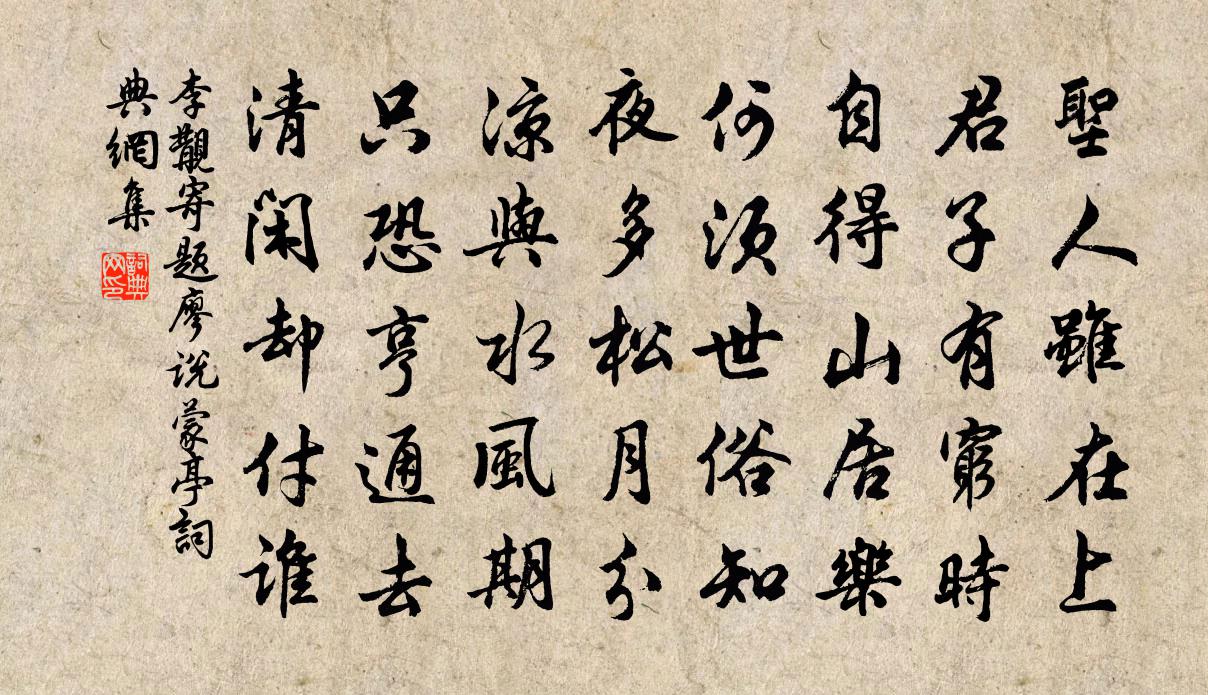 聖人雖在上
君子有窮時
自得山居樂
何須世俗知
夜多松月分
涼與水風期
只恐亨通去
清閑却付誰
李觀寄題廖說蒙亭詞
典網集
詞典網印